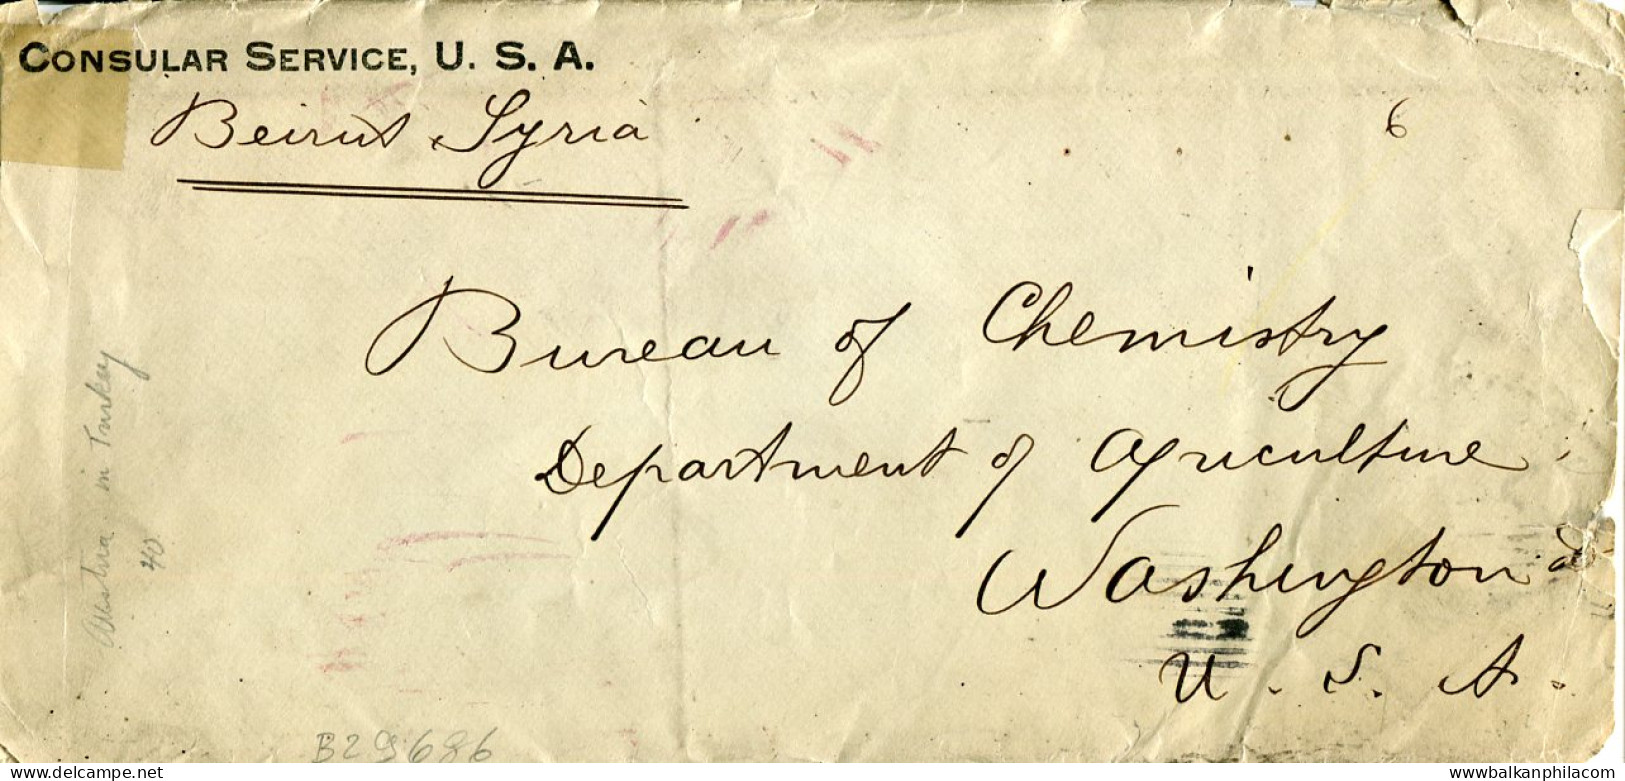 CONSULAR SERVICE, U. S. A.
Beirut Syria
6
Bureau of Chemistry
Department of Agriculture
Washington
U. S. A.
Austria in Turkey
40
B29686
www.balkanphila.com